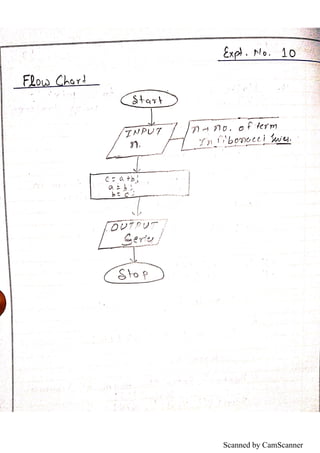 Expt. No. 10
Flow Chart
Start
INPUT
n.
n → no. of term
In fibonacci
c = a+b;
a = b;
b = c;
OUTPUT
Stop
Scanned by CamScanner